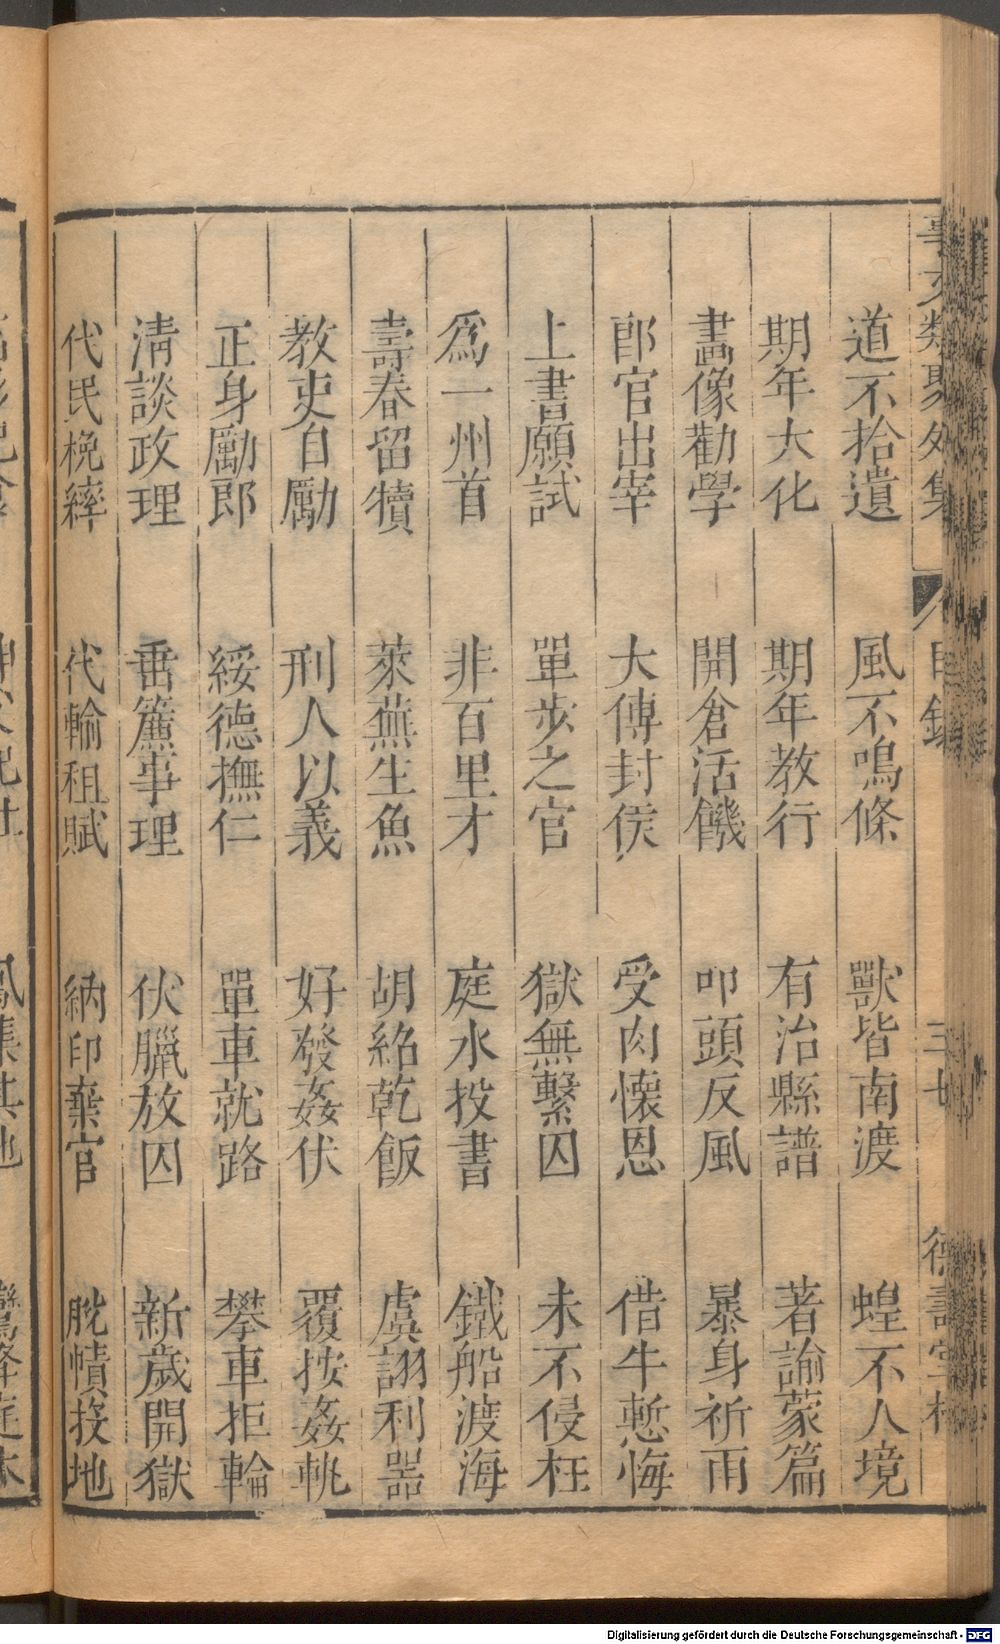 事文類聚外集 目錄 三廿
道不拾遺 風不鳴條 獸皆南渡 蝗不入境
期年大化 期年教行 有治縣譜 著諭蒙篇
畫像勸學 開倉活饑 叩頭反風 暴身祈雨
郎官出宰 大傅封侯 受肉懷恩 借牛慙悔
上書願試 單步之官 獄無繫囚 未不侵枉
爲一州首 非百里才 庭水投書 鐵船渡海
壽春留犢 萊蕪生魚 胡絡乾飯 虞詡利器
教吏自勵 刑人以義 好發姦伏 覆按姦
正身勵郎 綏德撫仁 單車就路 攀車拒輪
清談政理 垂簾事理 伏臘放囚 新歲開獄
代民桅縴 代輸租賦 納印棄官 脫幘投地
Digitalisierung gefördert durch die Deutsche Forschungsgemeinschaft - DFG